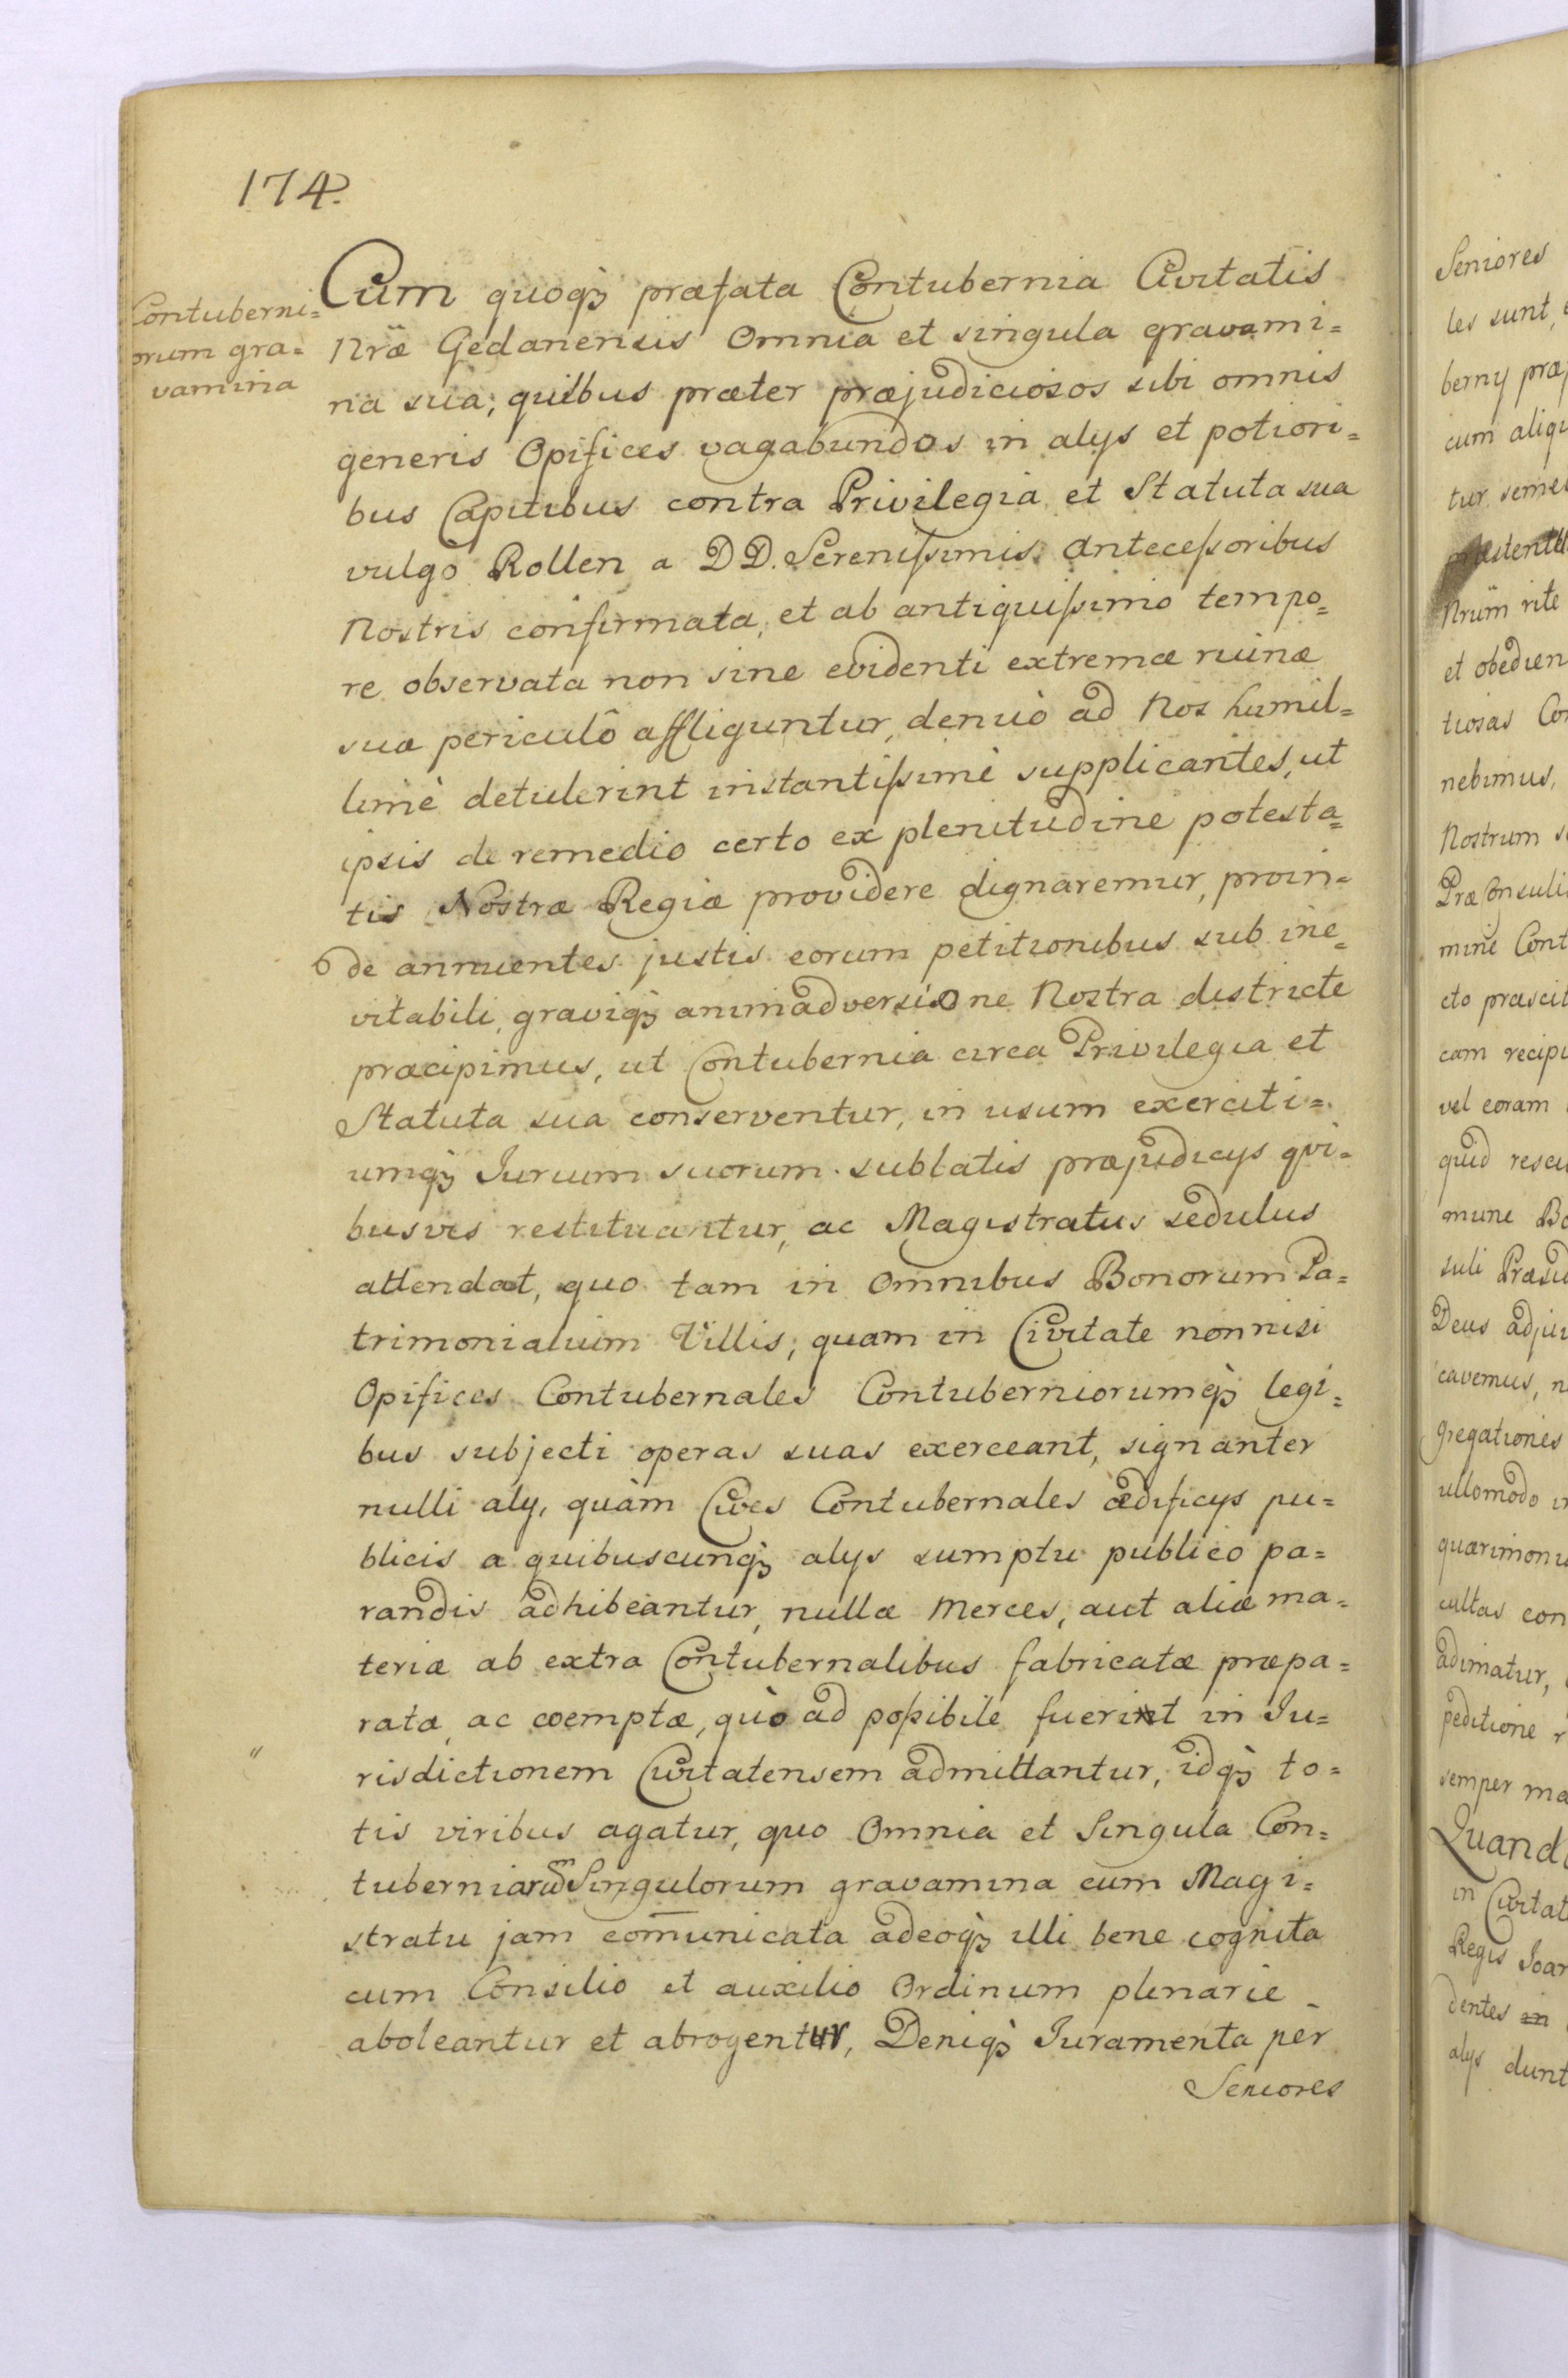 174.
Contuberni=
orum gra=
vamina
Cum quoqꝫ præfata Contubernia Civitatis
Nræ Gedanensis Omnia et singula gravami=
na sua; quibus præter præjudiciosos sibi omnis
generis Opifices vagabundos in alys et potiori=
bus Capitibus contra Privilegia et Statuta sua
vulgo Rollen a DD. Serenissimis Antecessoribus
Nostris confirmata, et ab antiquissimo tempo=
re observata non sine evidenti extremæ ruinæ
suæ periculô affliguntur, denuò ad Nos humil=
limè detulerint instantissimè supplicantes, ut
ipsis de remedio certo ex plenitudine potesta=
tis Nostræ Regiæ providere dignaremur, proin=
de annuentes justis eorum petitionibus sub ine=
vitabili, graviqꝫ animadversione Nostra districte
præcipimus, ut Contubernia circa Privilegia et
Statuta sua conserventur, in usum exerciti=
umqꝫ Jurium suorum sublatis præjudicys qvi=
busvis restituantur, ac Magistratus sedulus
attendat, quo tam in Omnibus Bonorum Pa=
trimonialium Villis; quam in Civitate nonnisi
Opifices Contubernales Contuberniorumqꝫ legi=
bus subjecti operas suas exerceant, signanter
nulli aly, quàm Cives Contubernales ædificys pu=
blicis a quibuscunqꝫ alys sumptu publico pa=
randis adhibeantur, nullæ Merces, aut aliæ ma=
teriæ ab extra Contubernalibus fabricatæ præpa=
ratæ, ac coemptæ, quò ad possibile fuerint in Ju=
risdictionem Civitatensem admittantur, idqꝫ to=
tis viribus agatur, quo Omnia et Singula Con=
tuberniorum Singulorum gravamina cum Magi=
stratu jam com̅unicata adeoqꝫ illi bene cognita
cum Consilio et auxilio Ordinum plenarie
aboleantur et abrogentur, Deniqꝫ Juramenta per
Seniores
Seniores
les sunt,
berny præ
cum aliqu
tur seme
Nrum rite
et obedien
tiosas Co
nebimus,
Nostrum s
PræConsuli
mine Cont
cto præscit
cam recipi
vel coram
quid resci
mune Bo
suli Præsi
Deus adju
cavemus, n
gregationes
ullomodo in
quærimoni
cultas con
adimatur,
peditione r
semper ma
Quando
in Civitat
Regis Joan
dentes in
alys dunt